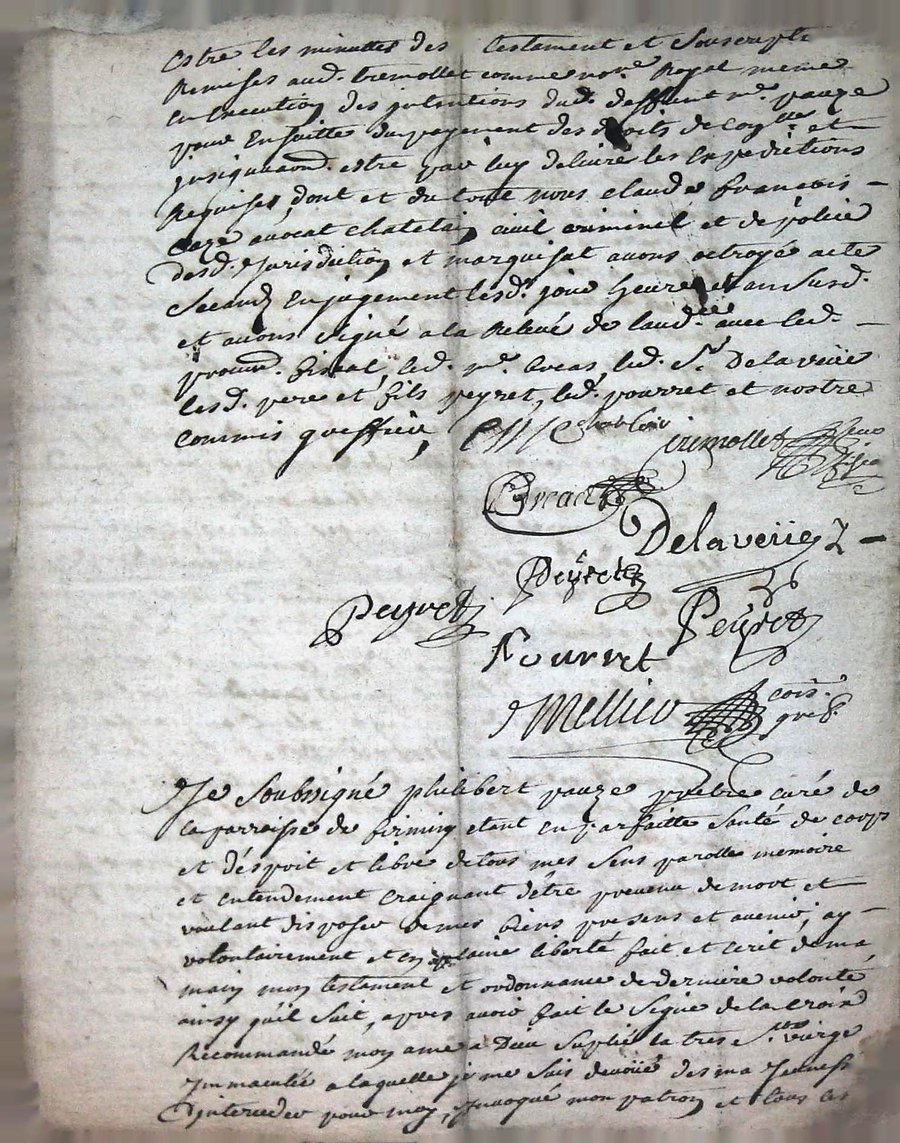 estre les minuttes des testament et souscripte
Remises aud. tremollet comme nore. Royal meme
En Execution des intentions dud. deffunt mr. pauze
pour Ensuitte du payement des droits de et
jusiquaond. estre par luy delivré les Expeditions
Requises, dont et du tout nous claude françois
avocat chatelain civil criminel et de police
desd. jurisdiction et marquisat avons octroyé acte
Secand Enjugement lesd. jour heure et an susd.
et avons signé a la Relevé de laud.ce avec led.
procur. fiscal, led. mr. breas, led. Sr. Delaveüe
lesd. pere et fils peyret, led. pourret et nostre
commis greffier,
tremollet
Breas
Delaveüe
Peyret
Peyret
Peyret
Pourret
Mellier cois. gref.
Je Soubsigné philibert pauze prebtre curé de
la parroisse de firminy etant en parfaitte santé de corps
et d'esprit et libre de tous mes Sens parolle memoire
et entendement craignant d'être prevenu de mort et
voulant disposer de mes biens presens et avenir, ay
volontairement et en plaine liberté fait et ecrit de ma
main mon testament et ordonnance de derniere volonté
ainsy qu'il suit, apres avoir fait le Signe de la Croix
Recommandé mon ame a Dieu Suplié la tres Ste. vierge
Immaculée a laquelle je me suis devoüé des ma Jeunesse
d'interceder pour moy, Invoqué mon patron et tous les